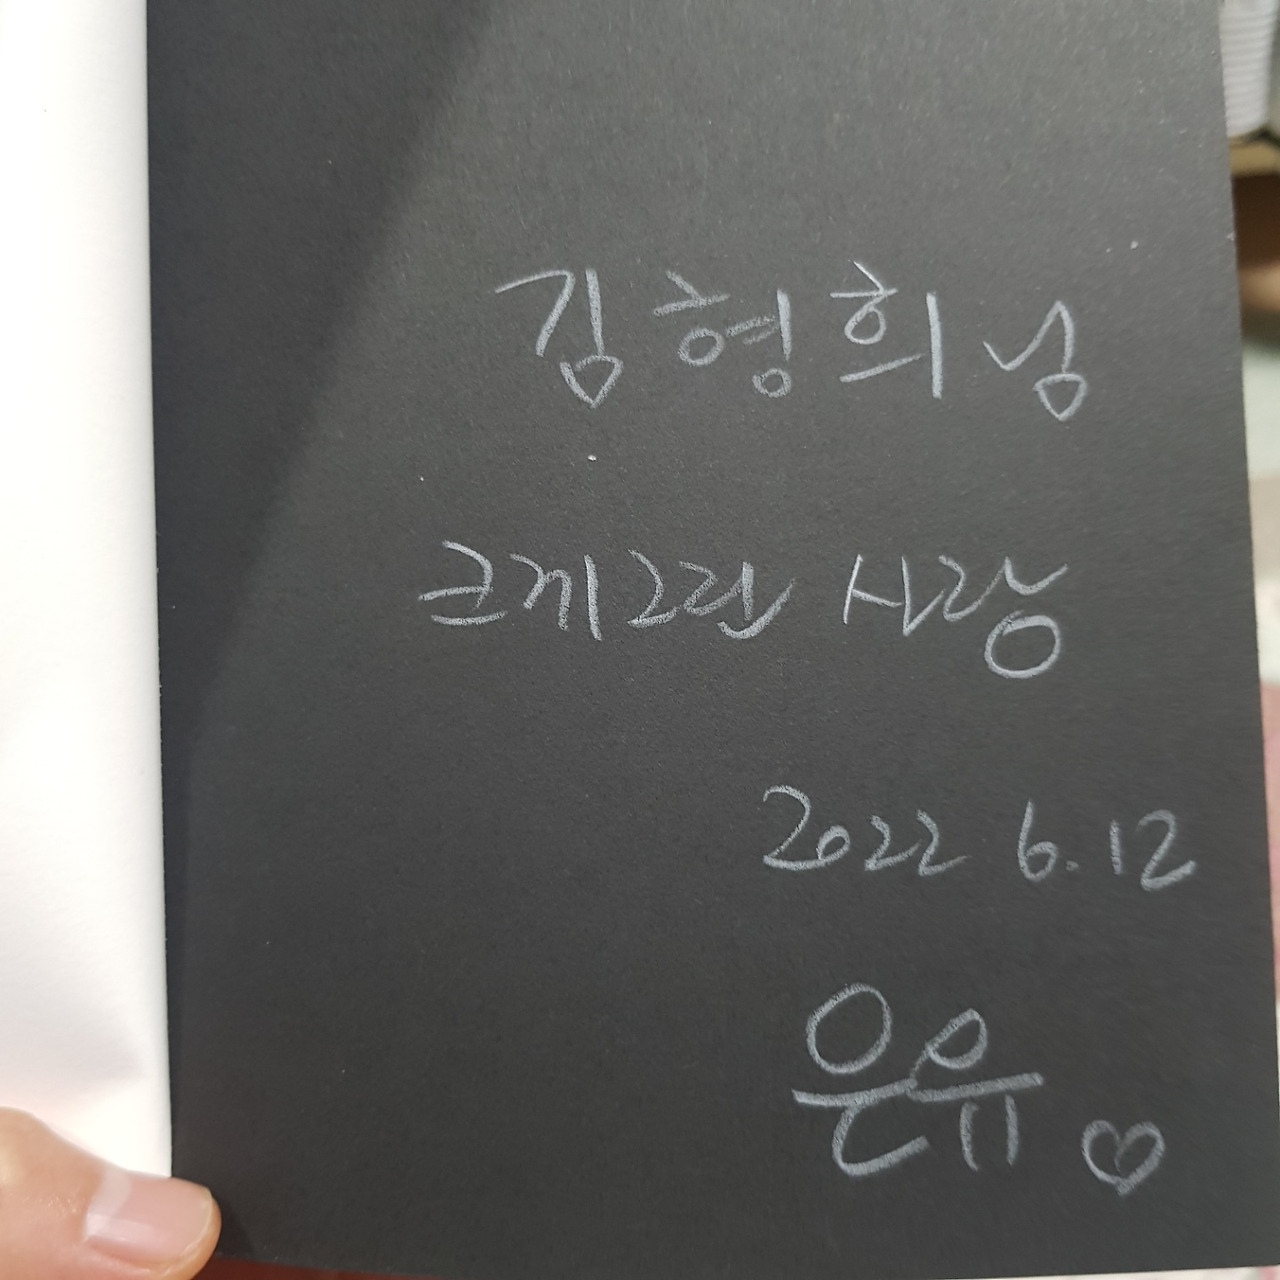 김형희님
크게 그린 사랑
2022 6. 12
은유♡